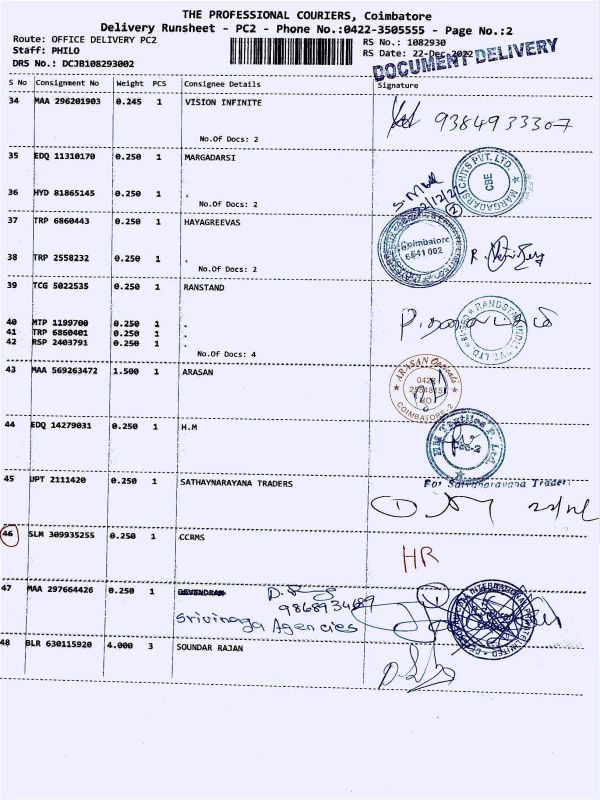 THE PROFESSIONAL COURIERS, Coimbatore
Delivery Runsheet - PC2 - Phone No.:0422-3505555 - Page No.:2
Route: OFFICE DELIVERY PC2 RS No.: 1082930
Staff: PHILO RS Date: 22-Dec-2022
DRS No.: DCJB108293002 DOCUMENT DELIVERY
S No Consignment No Weight PCS Consignee Details Signature
34 MAA 296201903 0.245 1 VISION INFINITE
9384933307
No.Of Docs: 2
35 EDQ 11310170 0.250 1 MARGADARSI
MARGADARSI CHITS PVT. LTD. CBE
36 HYD 81865145 0.250 1 .
No.Of Docs: 2
37 TRP 6860443 0.250 1 HAYAGREEVAS
Coimbatore
641 002
38 TRP 2558232 0.250 1 .
No.Of Docs: 2
39 TCG 5022535 0.250 1 RANSTAND
40 MTP 1199700 0.250 1 .
41 TRP 6860401 0.250 1 .
42 RSP 2403791 0.250 1 .
No.Of Docs: 4
43 MAA 569263472 1.500 1 ARASAN
ARASAN
0422
COIMBATORE-2
44 EDQ 14279031 0.250 1 H.M
45 UPT 2111420 0.250 1 SATHAYNARAYANA TRADERS
For Sathanarayana Traders
46 SLM 309935255 0.250 1 CCRMS
HR
47 MAA 297664426 0.250 1 DEVENDRAN
9868934689
Srivinaga Agencies
48 BLR 630115920 4.000 3 SOUNDAR RAJAN